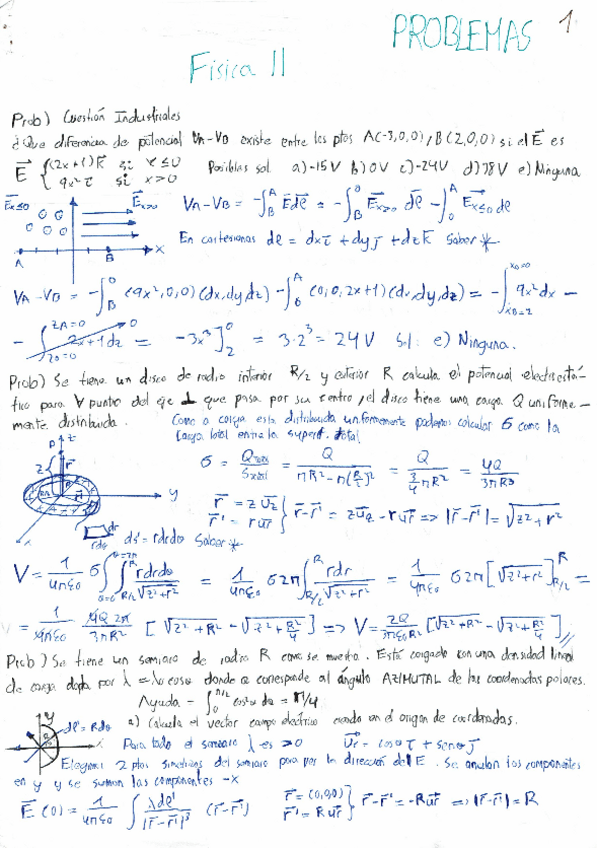 PROBLEMAS 1
Física II
Prob) Cuestión Industriales
¿Que diferencia de potencial VA-VB existe entre los ptos A(-3,0,0), B(2,0,0) si el E⃗ es
E⃗ { (2x+1)k⃗ si x≤0 Posibles sol. a)-15V b) 0V c)-24V d) 78V e) Ninguna
9x² i⃗ si x>0
E⃗x≤0 E⃗x>0 VA-VB = -∫_B^A E⃗ dl⃗ = -∫_B^0 E⃗x>0 dl⃗ - ∫_0^A E⃗x≤0 dl⃗
A B x En cartesianas dl⃗ = dx i⃗ + dy j⃗ + dz k⃗ Saber *
VA-VB = -∫_B^0 (9x²,0,0)(dx,dy,dz) - ∫_0^A (0,0,2x+1)(dx,dy,dz) = -∫_{xB=2}^{x0=0} 9x² dx -
- ∫_{z0=0}^{zA=0} 2x+1 dz → 0 = -3x³]_2^0 = 3·2³ = 24V Sol: e) Ninguna.
Prob) Se tiene un disco de radio interior R/2 y exterior R calcula el potencial electrostá-
tico para ∀ punto del eje ⊥ que pasa por su centro, el disco tiene una carga Q uniforme-
mente distribuida. Como a carga esta distribuida uniformemente podemos calcular σ como la
Carga total entre la superf. total
σ = Qtotal/Stotal = Q/(πR²-π(R/2)²) = Q/(3/4 πR²) = 4Q/(3πR²)
r⃗ = z u⃗z
r⃗' = r u⃗r } r⃗-r⃗' = z u⃗z - r u⃗r => |r⃗-r⃗'| = √(z²+r²)
ds' = r dr dθ Saber *
V = 1/(4πε0) σ ∫_{θ=0}^{θ=2π} ∫_{R/2}^R r dr dθ/√(z²+r²) = 1/(4πε0) σ2π ∫_{R/2}^R r dr/√(z²+r²) = 1/(4πε0) σ2π [√(z²+r²)]_{R/2}^R =
= 1/(4πε0) 4Q 2π/(3πR²) [√(z²+R²) - √(z²+R²/4)] => V = 2Q/(3πε0R²) [√(z²+R²) - √(z²+R²/4)]
Prob) Se tiene un semiaro de radio R como se muestra. Está cargado con una densidad lineal
de carga dada por λ = λ0 cosα donde α corresponde al ángulo AZIMUTAL de las coordenadas polares.
Ayuda - ∫_0^{π/2} cos²α dα = π/4
y dl' = Rdα a) Calcula el vector campo eléctrico creado en el origen de coordenadas.
Para todo el semiaro λ es >0 u⃗r = cosα i⃗ + senα j⃗
Elegimos 2 ptos simétricos del semiaro para ver la dirección del E⃗. Se anulan las componentes
en y y se suman las componentes -x
E⃗(0) = 1/(4πε0) ∫ λdl'/|r⃗-r⃗'|³ (r⃗-r⃗') r⃗ = (0,0,0)
r⃗' = R u⃗r } r⃗-r⃗' = -R u⃗r => |r⃗-r⃗'| = R